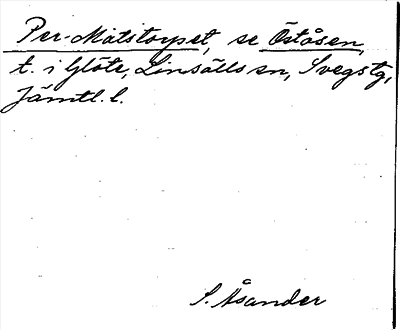 Per-Matstorpet, se Öståsen,
t. i Glöte, Linsälls sn, Svegs tg,
Jämtl. l.
S. Åsander